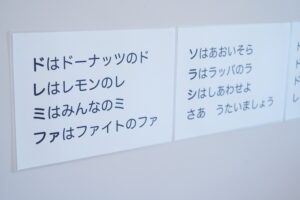 ドはドーナッツのド
レはレモンのレ
ミはみんなのミ
ファはファイトのファ
ソはあおいそら
ラはラッパのラ
シはしあわせよ
さあ　うたいましょう